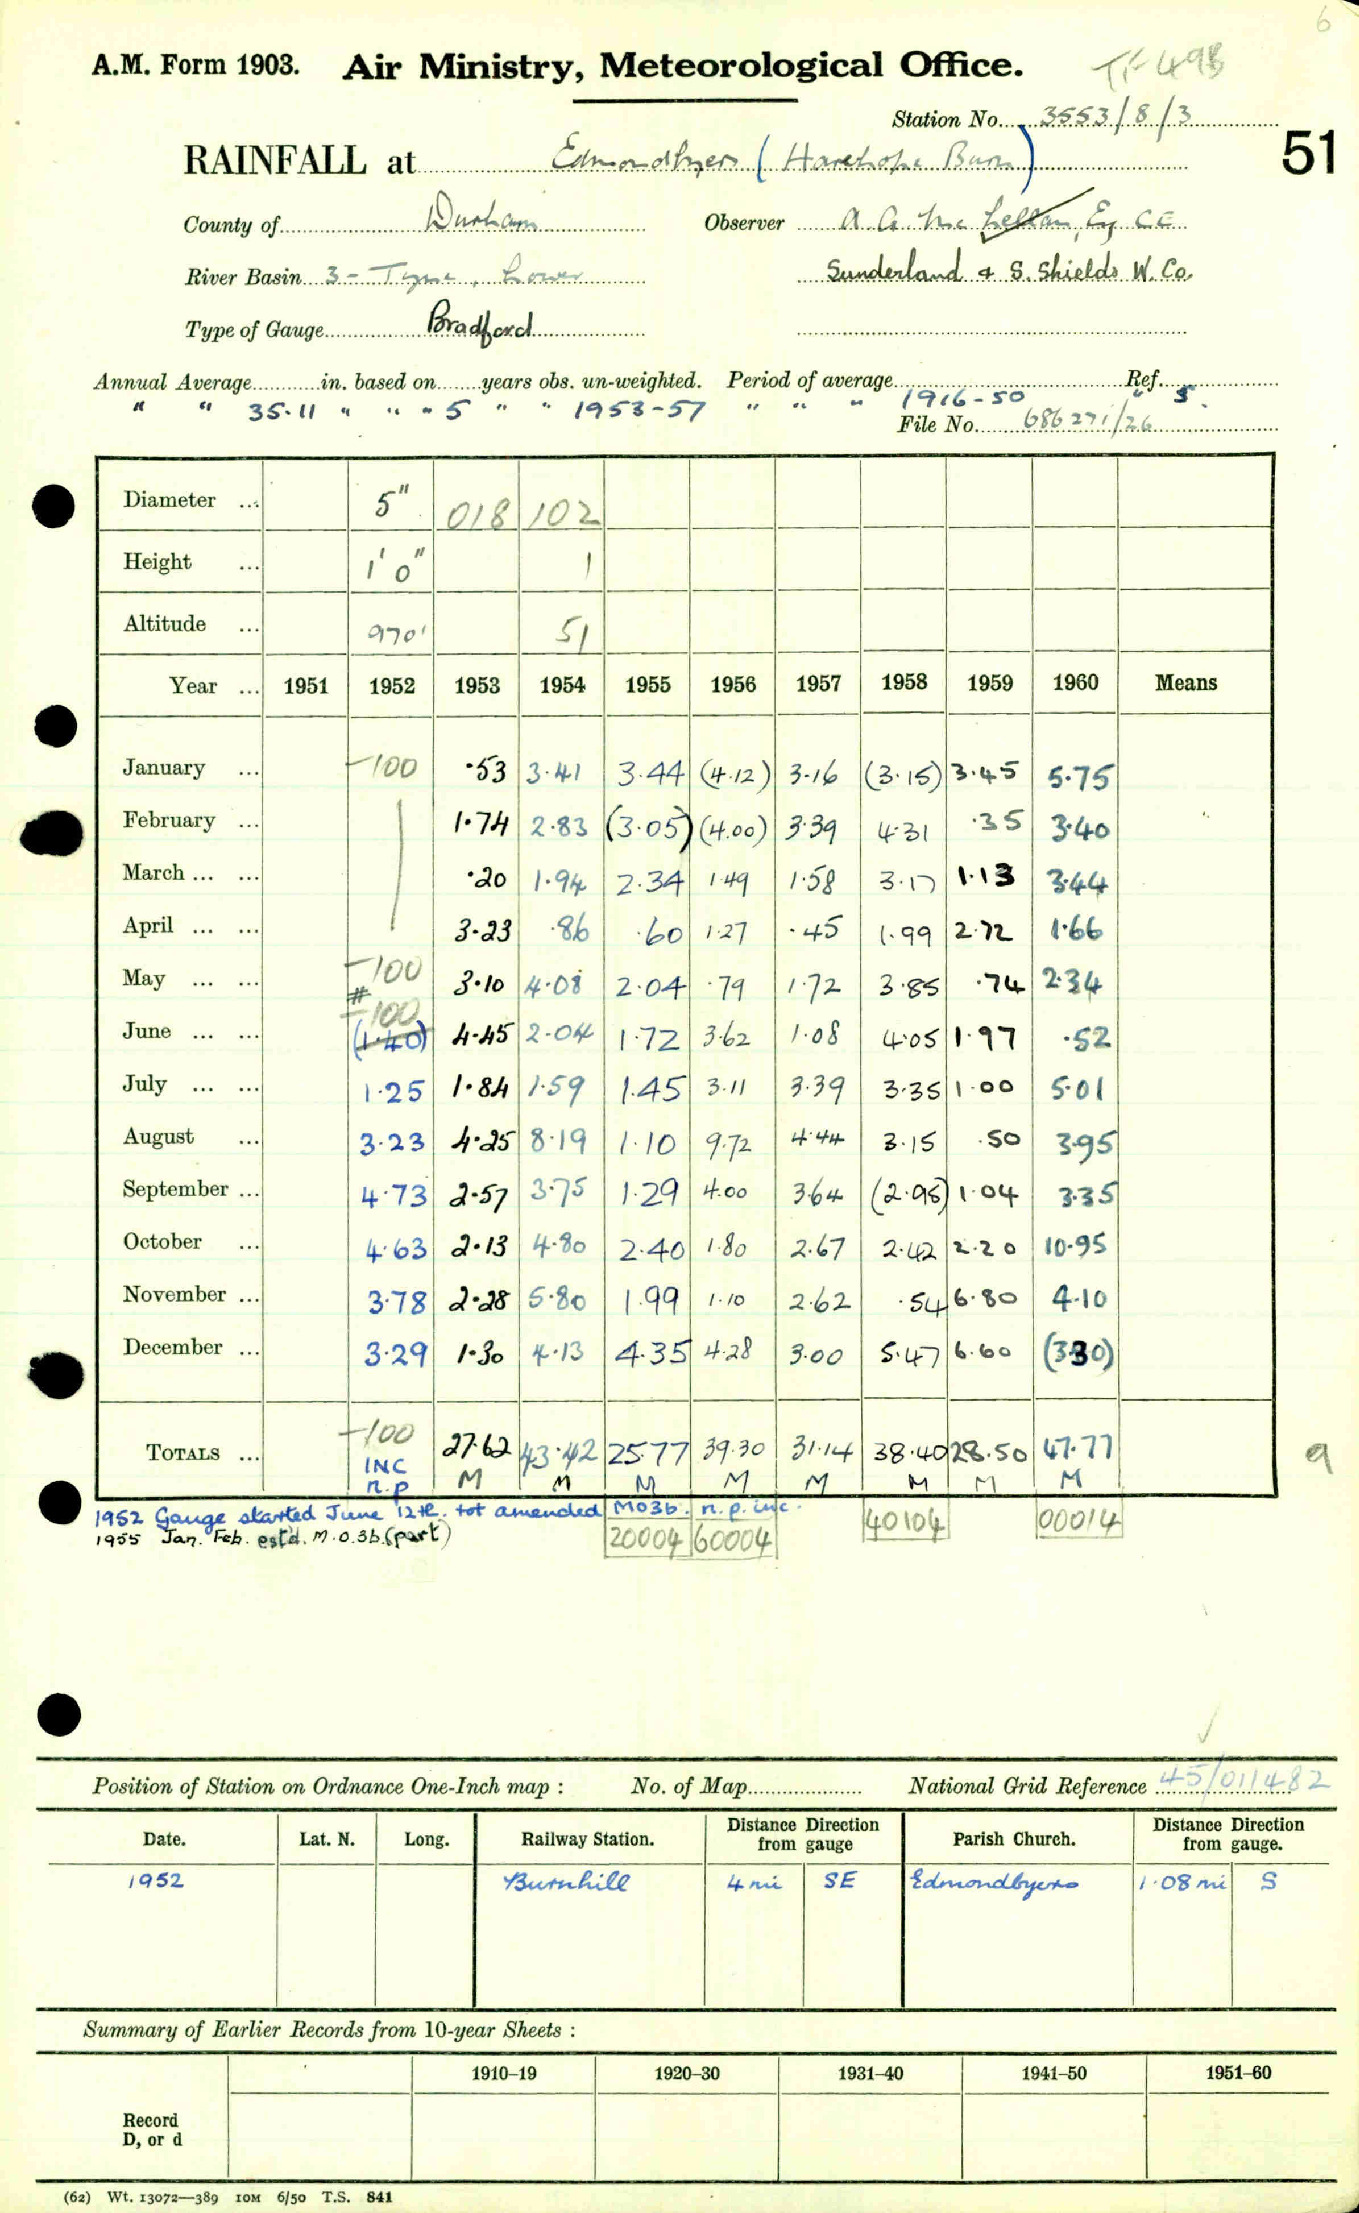 6
A.M. Form 1903. Air Ministry, Meteorological Office. TF 493
Station No. 3553/8/3
RAINFALL at Edmondbyers (Harehope Burn) 51
County of Durham Observer A. G. Mc Lellan, Esq CE
River Basin 3 - Tyne, Lower Sunderland & S. Shields W. Co.
Type of Gauge Bradford
Annual Average in. based on years obs. un-weighted. Period of average Ref.
" " 35.11 " " " 5 " " 1953-57 " " " 1916-50 " S.
File No. 686271/26
Diameter ... 5" 018 102
Height ... 1' 0" 1
Altitude ... 970' 51
Year ... 1951 1952 1953 1954 1955 1956 1957 1958 1959 1960 Means
January ... -100 .53 3.41 3.44 (4.12) 3.16 (3.15) 3.45 5.75
February ... 1.74 2.83 (3.05) (4.00) 3.39 4.31 .35 3.40
March ... ... .20 1.94 2.34 1.49 1.58 3.17 1.13 3.44
April ... ... 3.23 .86 .60 1.27 .45 1.99 2.72 1.66
May ... ... -100 3.10 4.08 2.04 .79 1.72 3.85 .74 2.34
# -100
June ... ... (1.40) 4.45 2.04 1.72 3.62 1.08 4.05 1.97 .52
July ... ... 1.25 1.84 1.59 1.45 3.11 3.39 3.35 1.00 5.01
August ... 3.23 4.25 8.19 1.10 9.72 4.44 3.15 .50 3.95
September ... 4.73 2.57 3.75 1.29 4.00 3.64 (2.95) 1.04 3.35
October ... 4.63 2.13 4.80 2.40 1.80 2.67 2.42 2.20 10.95
November ... 3.78 2.28 5.80 1.99 1.10 2.62 .54 6.80 4.10
December ... 3.29 1.30 4.13 4.35 4.28 3.00 5.47 6.60 (3.30)
-100
TOTALS ... INC 27.62 43.42 25.77 39.30 31.14 38.40 28.50 47.77 9
n.p M M M M M M M M
1952 Gauge started June 12th. tot amended M03b. n.p. inc.
1955 Jan. Feb. est'd. M.O.3b.(part) 20004 60004 40104 00014
Position of Station on Ordnance One-Inch map : No. of Map National Grid Reference 45/011482
Date. Lat. N. Long. Railway Station. Distance Direction from gauge Parish Church. Distance Direction from gauge.
1952 Burnhill 4 mi SE Edmondbyers 1.08 mi S
Summary of Earlier Records from 10-year Sheets :
1910–19 1920–30 1931–40 1941–50 1951–60
Record
D, or d
(62) Wt. 13072—389 10M 6/50 T.S. 841